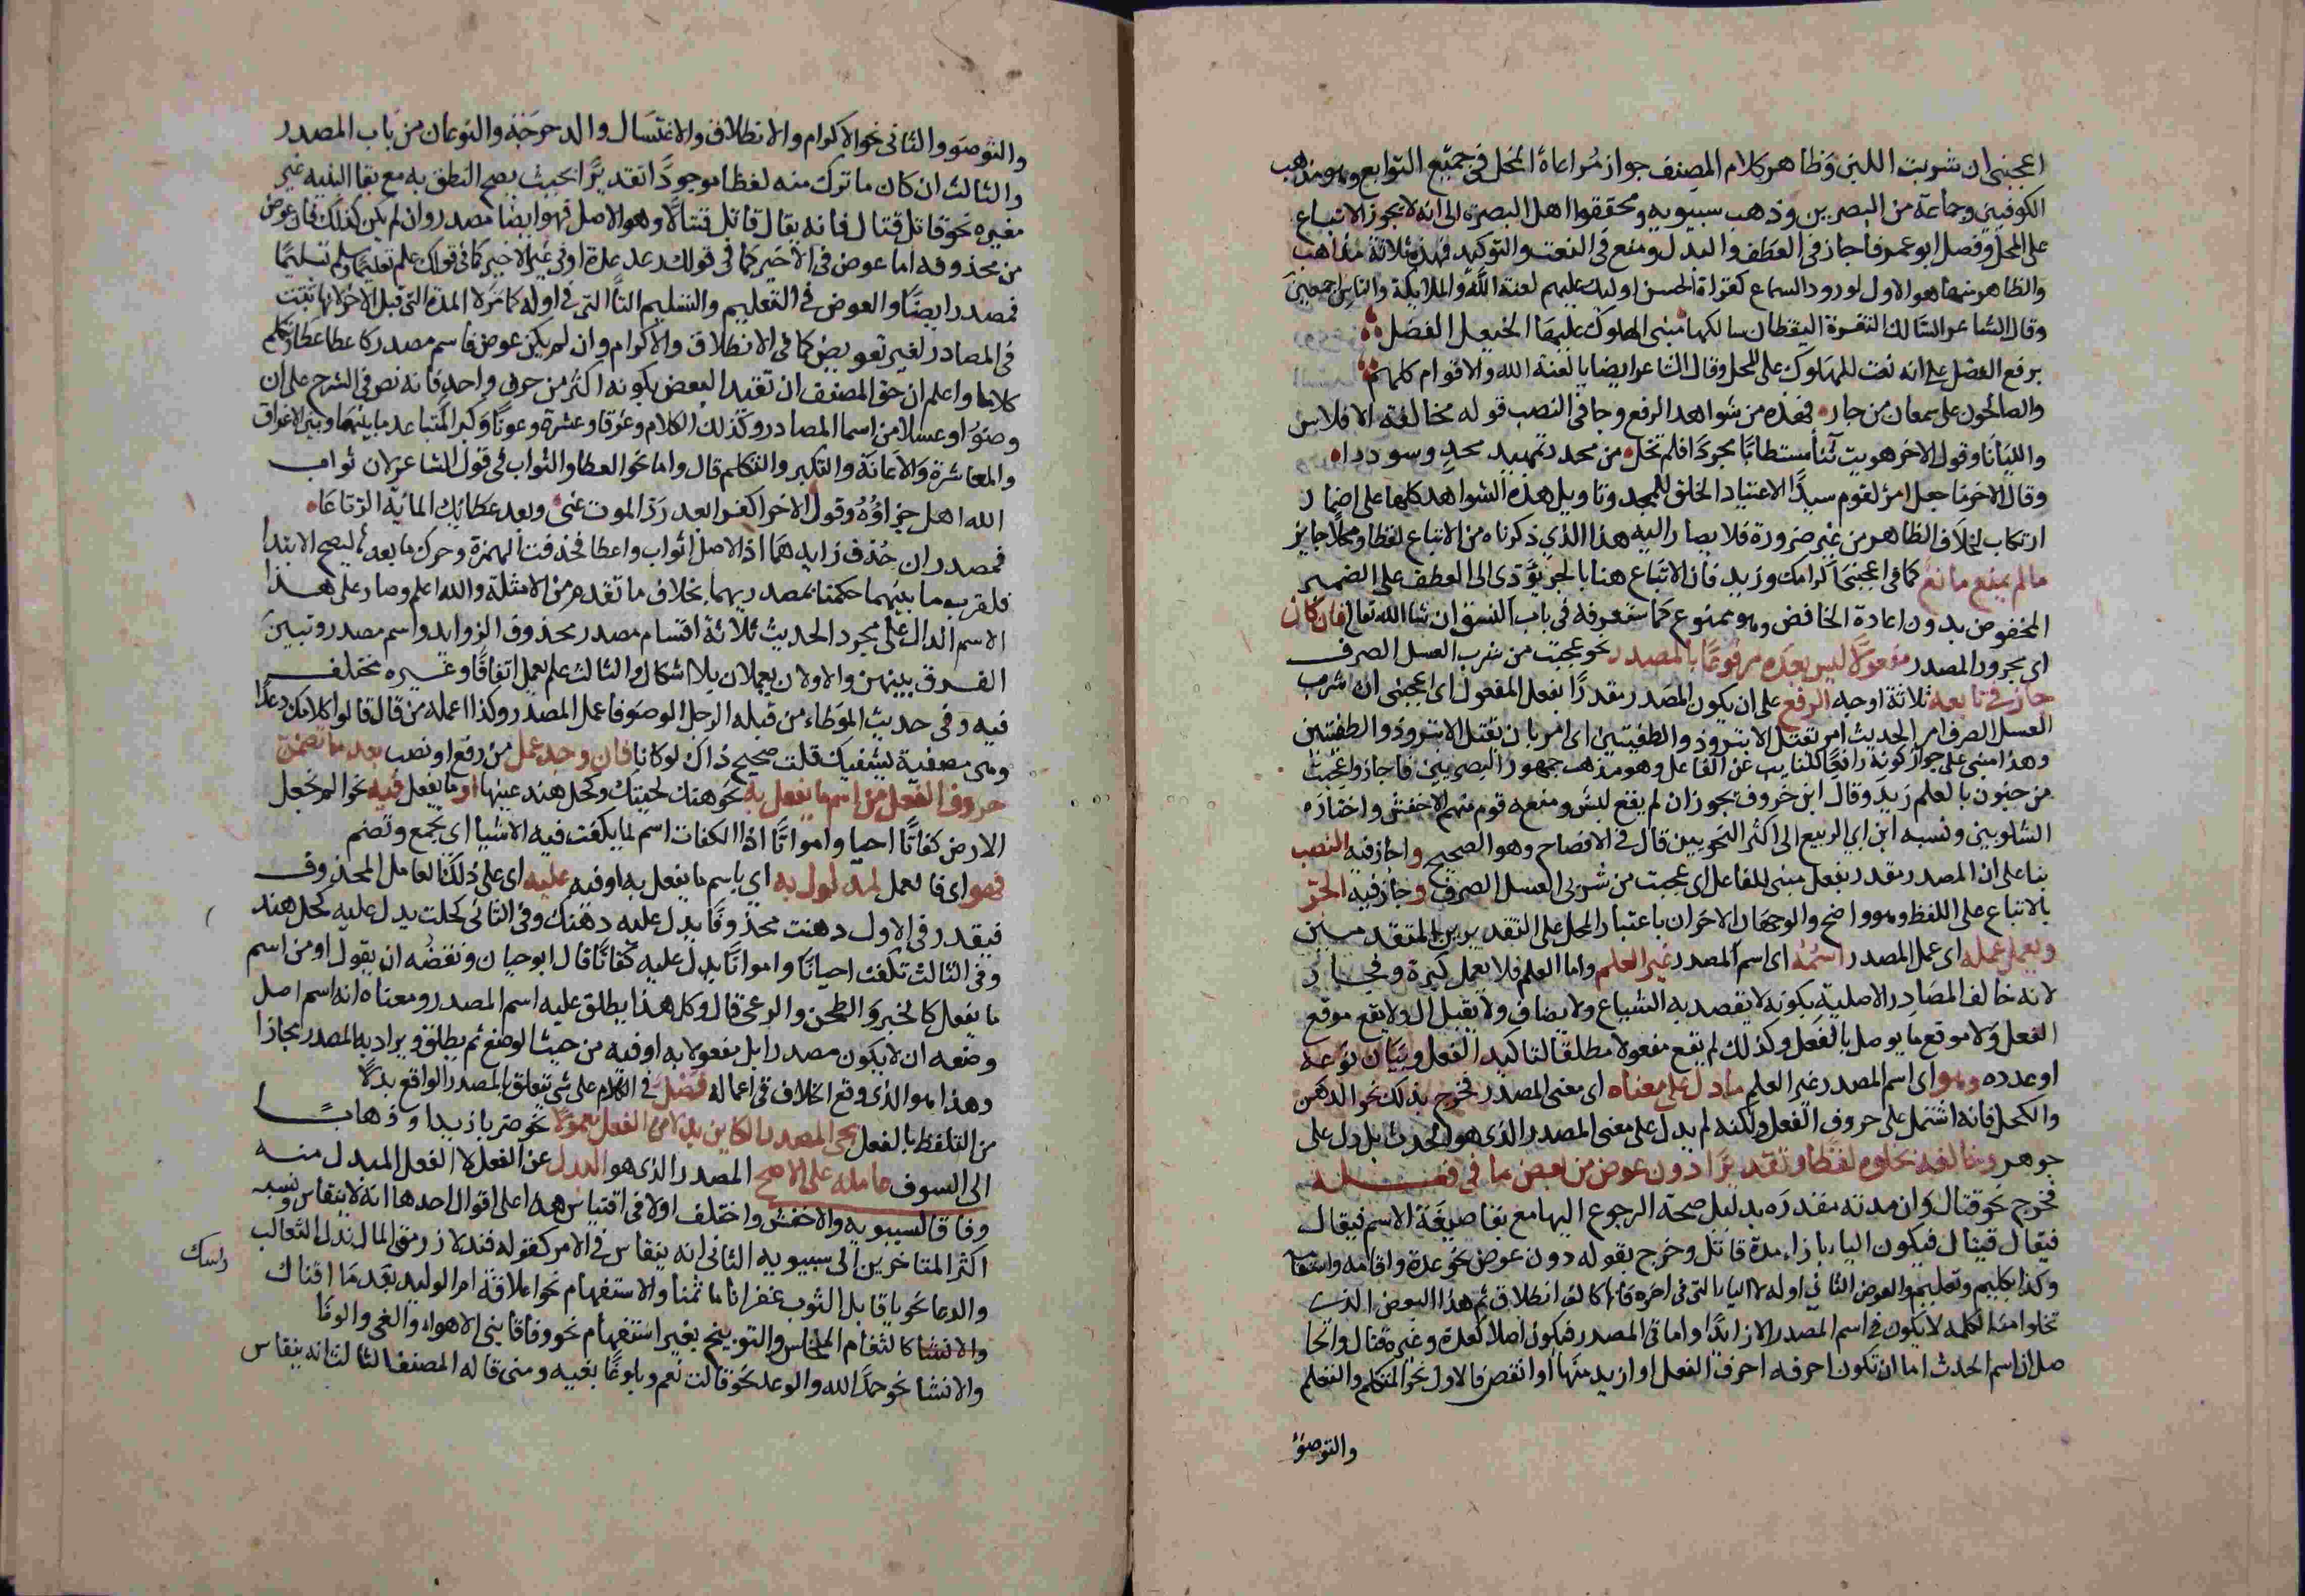 اعجبنى ان شربت اللبن وظاهر كلام المصنف جواز مراعاة المحل فى جميع التوابع وهو مذهب
الكوفيين وجماعة من البصريين وذهب سيبويه ومحققوا اهل البصرة الى انه لا يجوز الاتباع
على المحل وفصل ابو عمر فاجاز فى العطف والبدل ومنع فى النعت والتوكيد فهذه ثلاثة مذاهب
والظاهر منها هو الاول لورود السماع كقراة الحسن اوليك عليهم لعنة الله والملايكة والناس اجمعين
وقال الشاعر السالك الثغرة اليقظان سالكها مشى الهلوك عليها الخيعل الفضل
برفع الفضل على انه نعت للهلوك على المحل وقال الشاعر ايضا يا لعنة الله والاقوام كلهم
والصالحون على سمعان من جار فهذه من شواهد الرفع وجا فى النصب قوله مخالفة الافلاس
والليانا وقول الاخر هويت ثنا مستطابا مجردا فلم تخل من مجد تمهيد مجد وسوددا
وقال الاخر ما جعل امرؤ لقوم سيدا الا اعتياد الخلق الممجد وتاويل هذه الشواهد كلها على اضمار
ارتكاب لخلاف الظاهر من غير ضرورة فلا يصار اليه هذا الذي ذكرناه من الاتباع لفظا ومحلا جايز
مالم يمنع مانع كما فى اعجبنى اكرامك وزيد فان الاتباع هنا بالجر يؤدى الى العطف على الضمير
المخفوض بدون اعادة الخافض وهو ممنوع كما ستعرفه فى باب النسق ان شا الله تعالى فان كان
اى مجرور المصدر مفعولا ليس بعده مرفوعا بالمصدر نحو عجبت من شرب العسل الصرف
جاز فى تابعه ثلاثة اوجه الرفع على ان يكون المصدر مقدرا بفعل المفعول اى اعجبنى ان شرب
العسل الصرف امر الحديث امر بقتل الابتر وذو الطفيتين اى امر بان يقتل الابتر وذو الطفيتين
وهذا مبنى على جواز كونه رافعا للنايب عن الفاعل وهو مذهب جمهور البصريين فاجازوا عجبت
من جنون بالعلم زيد وقال ابن خروف يجوز ان لم يقع لبس ومنعه قوم منهم الاخفش واختاره
الشلوبين ونسبه ابن ابي الربيع الى اكثر النحويين قال فى الافصاح وهو الصحيح واجاز فيه النصب
بنا على ان المصدر مقدر بفعل مبنى للفاعل اى عجبت من شربى العسل الصرف وجاز فيه الجر
بالاتباع على اللفظ وهو واضح والوجهان الاخران باعتبار المحل على التقديرين المتقدمين
ويعمل عمله اى عمل المصدر اسمه اى اسم المصدر غير العلم واما العلم فلا يعمل كبرة وفجار
لانه خالف المصادر الاصلية بكونه لا يقصد به الشياع ولا يضاف ولا يقبل ال ولا يقع موقع
الفعل ولا موقع ما يوصل بالفعل وكذلك لم يقع مفعولا مطلقا لتاكيد الفعل وبيان نوعه
او عدده وهو اى اسم المصدر غير العلم ما دل على معناه اى معنى المصدر فخرج بذلك نحو الدهن
والكحل فانه اشتمل على حروف الفعل ولكنه لم يدل على معنى المصدر الذى هو الحدث بل دل على
جوهر وخالفه بخلوه لفظا وتقديرا دون عوض من بعض ما فى فعله
فخرج نحو قتال وان مدته مقدره بدليل صحة الرجوع اليها مع بقا صيغة الاسم فيقال
فيقال قيتال فيكون اليا بازا مدة قاتل وخرج بقوله دون عوض نحو عدة واقامه واستقا
وكذا تكليم وتعليم والعوض التا فى اوله لا اليا التى فى اخره فانها كالف انطلاق ثم هذا البعض الذى
تخلوا منه الكلمه لا يكون فى اسم المصدر الا زايدا واما فى المصدر فيكون اصلا كعدة وغيره كقتال والحا
صل ان اسم الحدث اما ان تكون احرفه احرف الفعل او ازيد منها او انقص فالاول نحو التكلم والتعلم
والتوضؤ
والتوضو والثانى نحو الاكرام والانطلاق والاغتسال والدحرجة والنوعان من باب المصدر
والثالث ان كان ما ترك منه لفظا موجودا تقديرا بحيث يصح النطق به مع بقا البنيه غير
مغيره نحو قاتل قتال فانه يقال قاتل قيتالا وهو الاصل فهو ايضا مصدر وان لم يكن كذلك فان عوض
من محذوفه اما عوض فى الاخير كما فى قولك وعد عدة او فى غير الاخير كما فى قولك علم تعليما وسلم تسليما
فمصدر ايضا والعوض فى التعليم والتسليم التا التى فى اوله كما مر لا المدة التى قبل الاخر لانها ثقبت
فى المصادر لغير تعويض كما فى الانطلاق والاكرام وان لم يكن عوض فاسم مصدر كاعطا عطا وتكلم
كلاما واعلم ان حق المصنف ان تقيد البعض بكونه اكثر من حرف واحد فانه نص فى الشرح على ان
وضوا وعسلا من اسما المصادر وكذلك الكلام وغرقا وعشرة وعونا وكبر المتباعد ما بينهما وبين الاغراق
والمعاشرة والاعانة والتكبر والتكلم قال واما نحو العطا والثواب فى قول الشاعر لان ثواب
الله اهل جزاؤه وقول الاخر اكفرا بعد رد الموت عنى وبعد عطايك الماية الرتاعا
فمصدران حذف زايدهما اذ الاصل اثواب واعطا فحذفت الهمزة وحرك ما بعد ليصح الابتدا
فلقرب ما بينهما حكمنا بمصدريهما بخلاف ما تقدم من الامثلة والله اعلم وصار على هذا
الاسم الدال على مجرد الحديث ثلاثة اقسام مصدر محذوف الزوايد واسم مصدر وتبين
الفرق بينهن والاولان يعملان بلا اشكال والثالث علم يعمل اتفاقا وغيره مختلف
فيه وفى حديث الموطاء من قبله الرجل الوضو فاعمل المصدر وكذا اعمله من قال قالوا كلامك دعدا
وهى مصغية يشفيك قلت صحيح ذاك لو كانا فان وجد عمل من رفع او نصب بعد ما تضمن
حروف الفعل من اسم ما يفعل به نحو دهنك لحيتك وكحل هند عينها او ما يفعل فيه نحو الم نجعل
الارض كفاتا احيا وامواتا اذ الكفات اسم لما يكفت فيه الاشيا اى يجمع وتضم
فهو اى فالعمل لمدلول به اى باسم ما يفعل به او فيه عليه اى على ذلك العامل المحذوف
فيقدر فى الاول دهنت محذوفا يدل عليه دهنك وفى الثانى كحلت يدل عليه كحل هند
وفى الثالث تكفت احيانا وامواتا يدل عليه كفاتا قال ابو حيان ونقضه ان يقول او من اسم
ما يفعل كالخبز والطحن والرعى قال وكل هذا يطلق عليه اسم المصدر ومعناه انه اسم اصل
وضعه ان لا يكون مصدرا بل مفعولا به او فيه من حيث الوضع ثم يطلق ويراد به المصدر مجازا
وهذا هو الذى وقع الخلاف فى اعماله فصل فى الكلام على شى يتعلق بالمصدر الواقع بدلا
من التلفظ بالفعل يجى المصدر الكاين بدلا من الفعل معمولا نحو ضربا زيدا وذهابا
الى السوف عامله على الاصح المصدر الذى هو البدل عن الفعل لا الفعل المبدل منه
وفاقا لسيبويه والاخفش واختلف اولا فى اقتياس هذا على اقوال احدها انه لا ينقاس ونسبه
اكثر المتاخرين الى سيبويه الثانى انه ينقاس فى الامر كقوله فندلا زريق المال ندل الثعالب
والدعا نحو يا قابل التوب غفرانا ماثما والاستفهام نحو اعلاقة ام الوليد بعد ما افنان
راسك
والتوبيخ بغير استفهام نحو وفاقا بنى الاهواء والغى والونا
والانشا نحو حمدا لله والوعد نحو قالت نعم وبلوغا بغيه ومنى قاله المصنف الثالث انه ينقاس